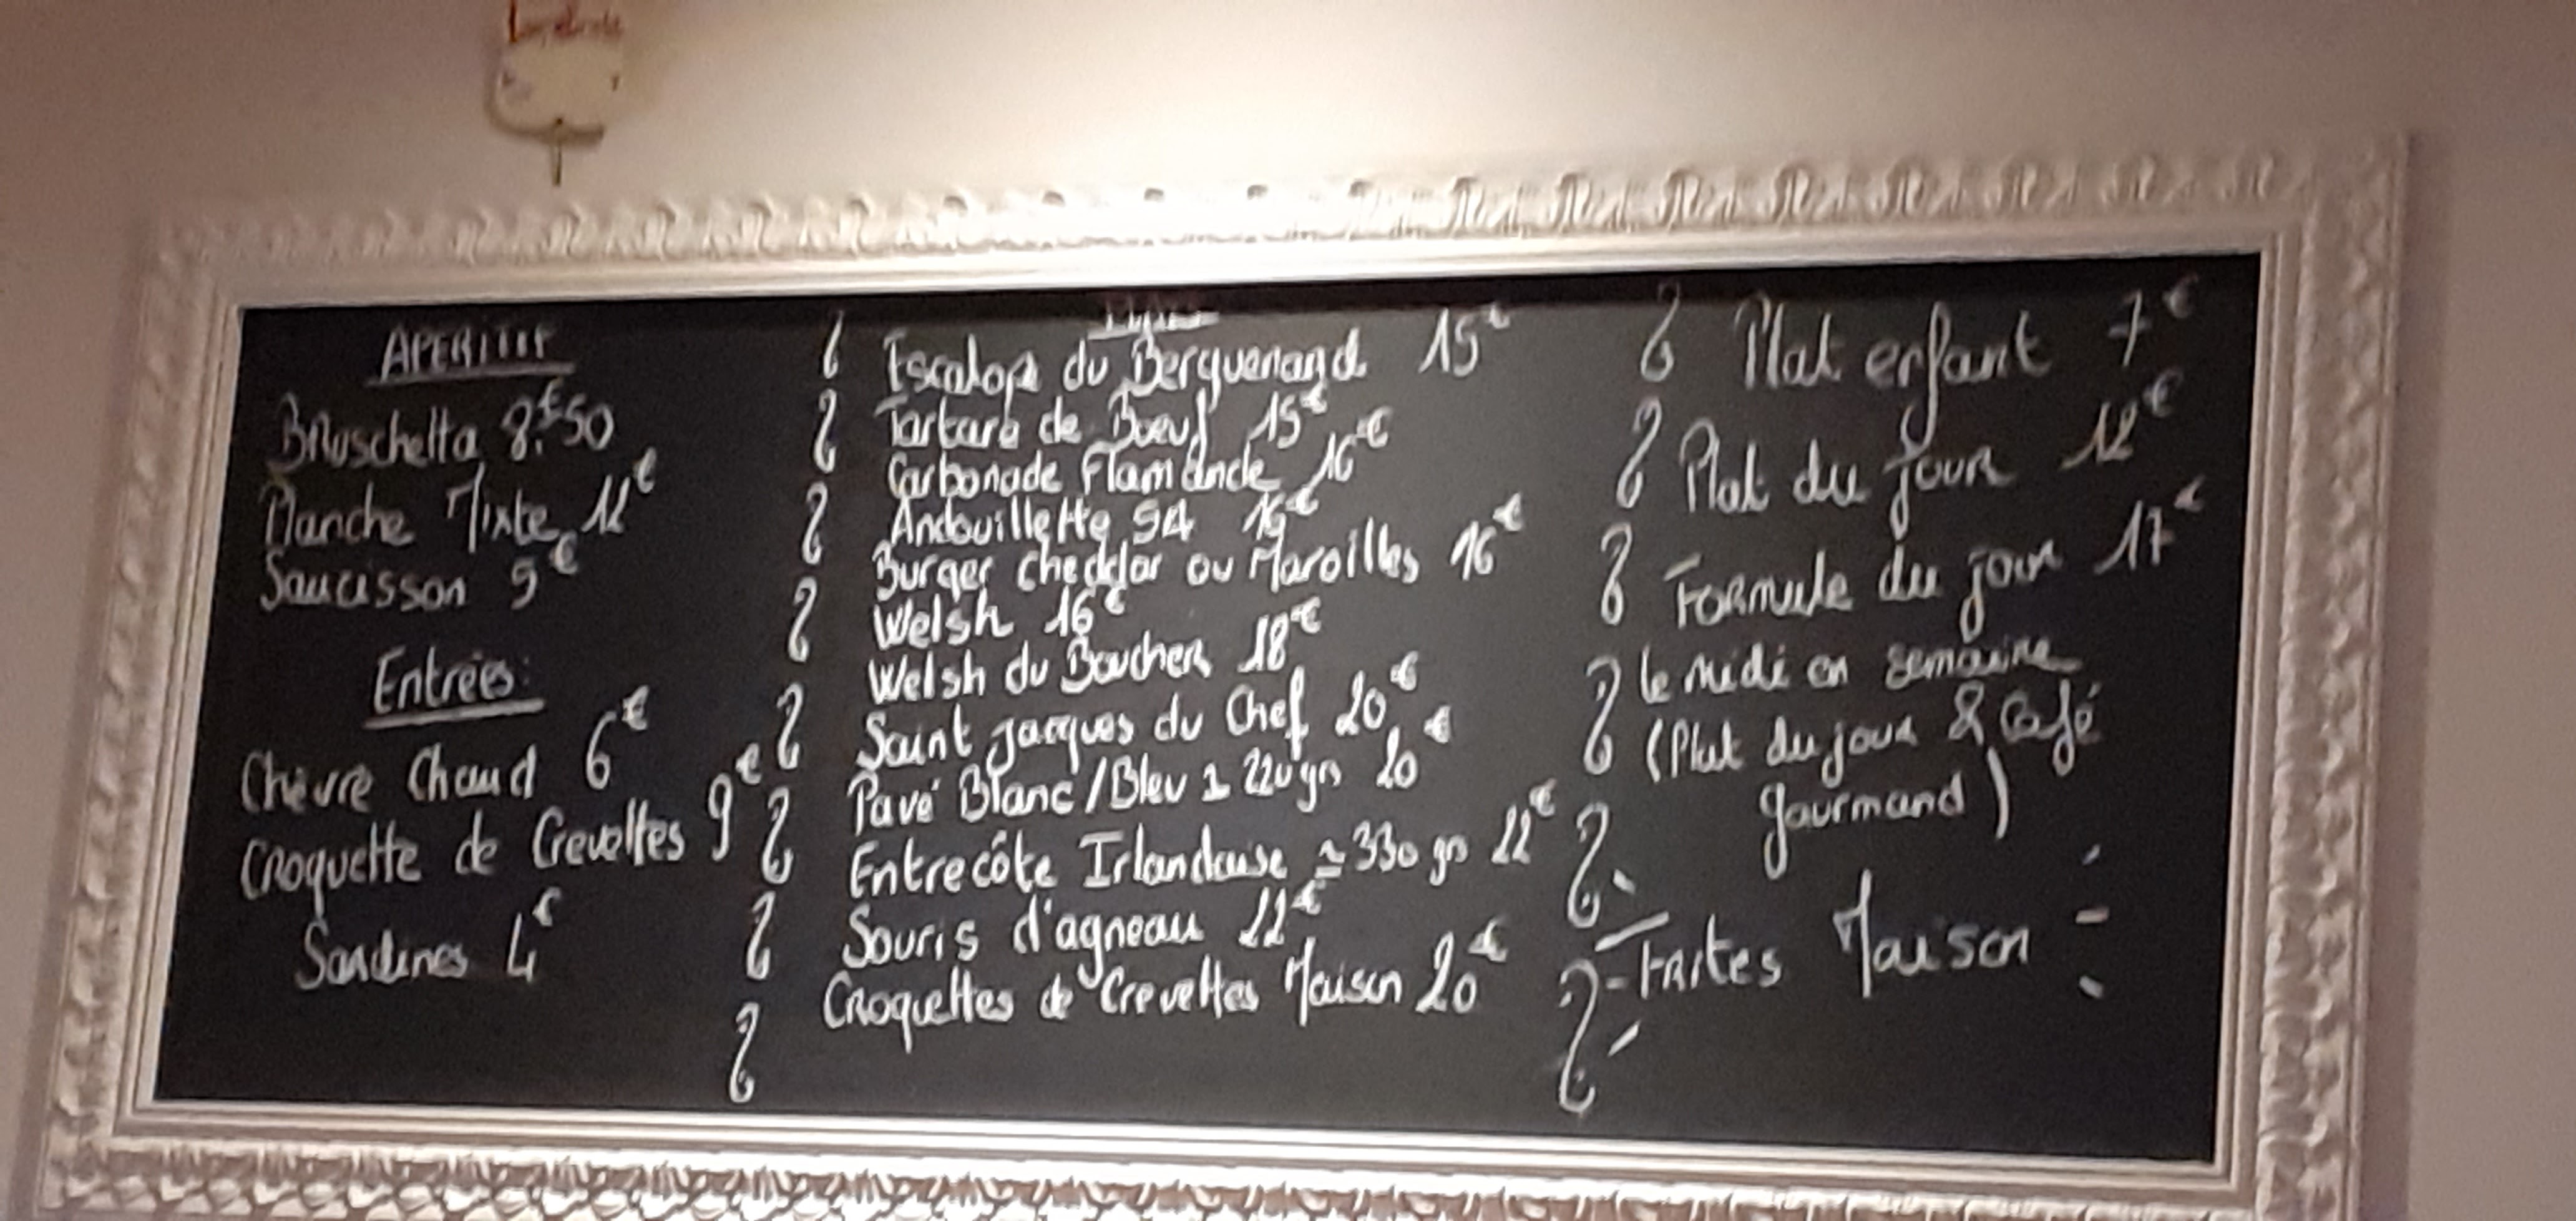 APERITIF
Bruschetta 8.€50
Planche Mixte 12€
Saucisson 9€
Entrées:
Chèvre Chaud 6€
Croquette de Crevettes 9€
Sardines 4€
Escalop du Berguenard 15€
Tartare de Boeuf 15€
Carbonade Flamande 16€
Andouillette 5A 16€
Burger cheddar ou Maroilles 16€
Welsh 16€
Welsh du Boucher 18€
Saint jacques du Chef 20€
Pavé Blanc/Bleu ± 220 grs 20€
Entrecôte Irlandaise ≃ 330 grs 22€
Souris d'agneau 22€
Croquettes de Crevettes Maison 20€
Plat enfant 7€
Plat du jour 12€
Formule du jour 17€
le midi en semaine
(Plat du jour & Café
gourmand)
Faites Maison